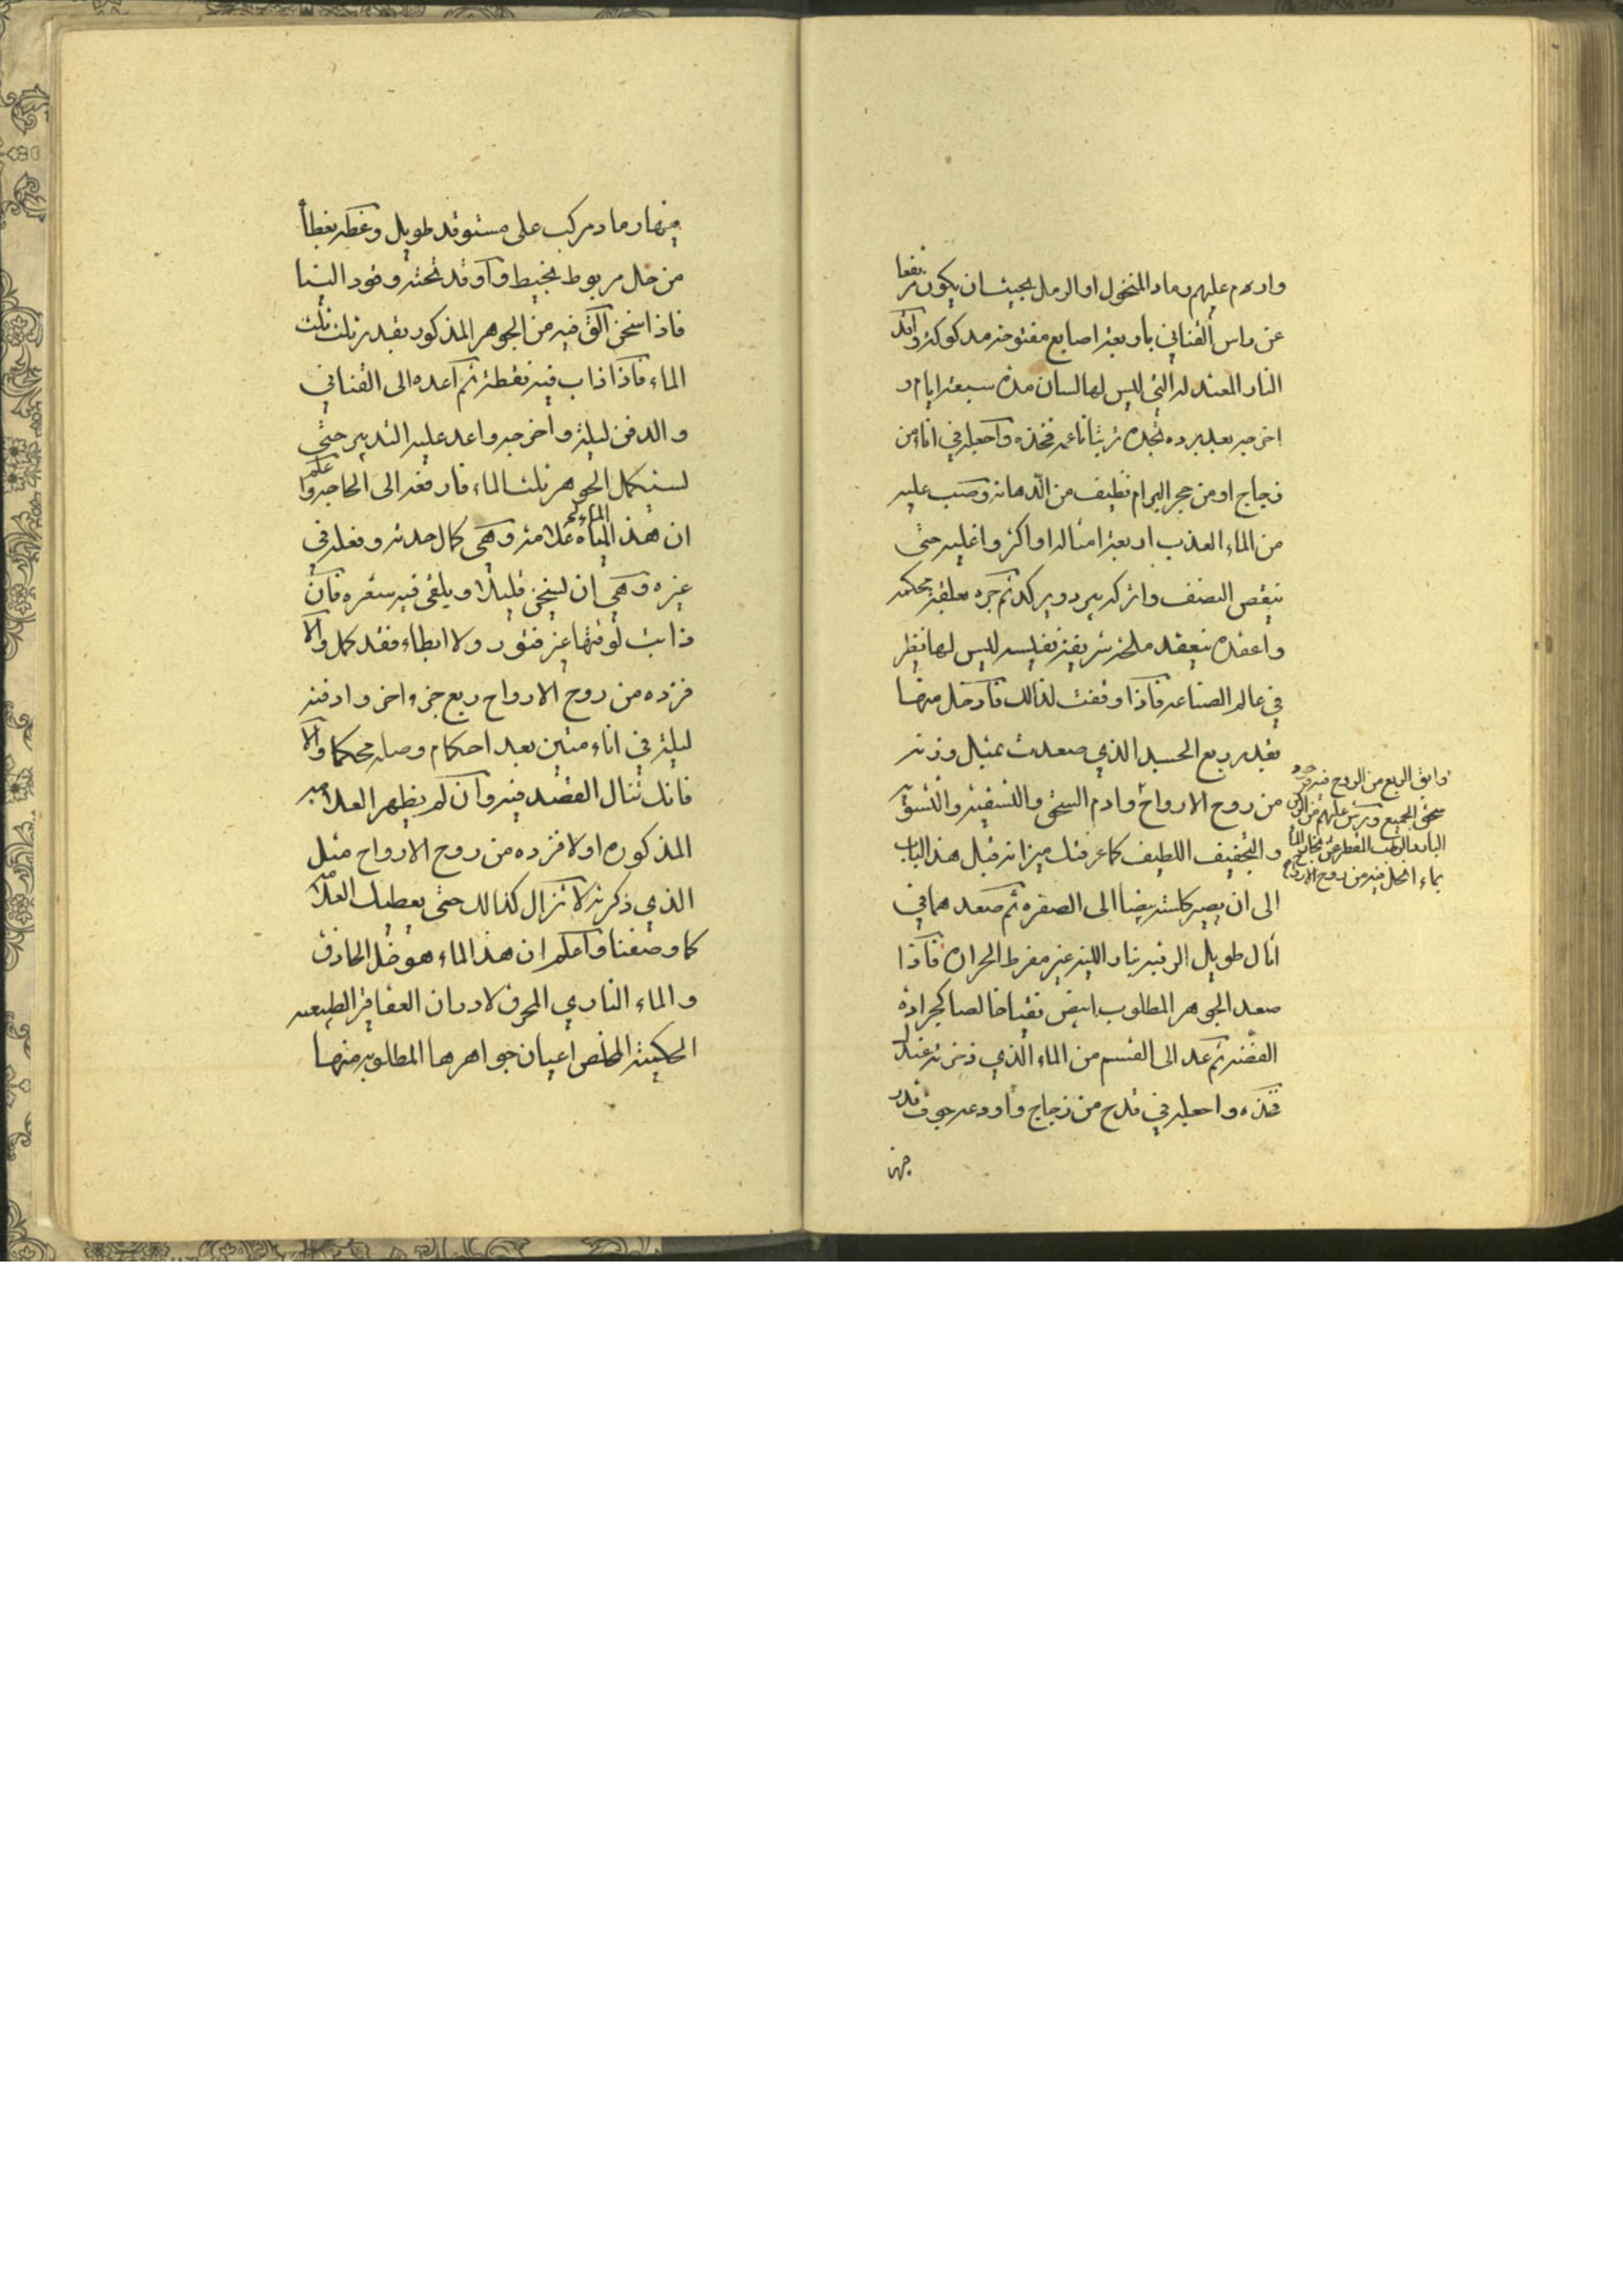 واردم عليهم رماد المنخول او الرمل بحيث ان يكون مرتفعا
عن راس القناني باربعة اصابع مفتوحة مدكوكة واوقد
النار المعتدلة التي ليس لها لسان مدة سبعة ايام و
اخرجه بعد برده تجده تربتا ناعمه فخذه واجعله في اناء من
زجاج او من حجر البرام نظيف من الدهانة وصب عليه
من الماء العذب اربعة امثاله او اكثر واغليه حتى
ينقص النصف واتركه يبرد ويركد ثم جره بعلقة محكمه
واعقده ينعقد ملحة شريفة نفيسه ليس لها نظير
في عالم الصناعه فاذا وقفت لذالك فادخل منها
بقدر ربع الجسد الذي صعدت بمثل وزنه
من روح الارواح وادم السحق والتسقية والتسوية
والتجفيف اللطيف كما عرفتك ميزانه قبل هذا الباب
الى ان يصير كلسته بيضا الى الصفره ثم صعدهما في
اثال طويل الرقبه بنار اللينه غير مفرط الحراره فاذا
صعد الجوهر المطلوب ابيض نقيا خالصا كجرادة
الفضه ثم عد الى القسم من الماء الذي ذخرته عندك
فخذه واجعله في قدح من زجاج واودعه جوف قدر
والق الربع من الروح فيه وجود
سحق الجميع ورش عليهم من
البارد الرطب المقطر عن
بماء انحل فيه من روح الارواح
فيها رماد مركب على مستوقد طويل وغطه بغطأ
من خل مربوط بخيط واوقد تحته وقود الينا
فاذا سخن الق فيه من الجوهر المذكور بقدر ثلث ثلث
الماء فاذا ذاب فيه نقطة ثم اعده الى القناني
والدفن ليلة واخرجه واعد عليه التدبير حتى
يستكمل الجوهر ثلث الماء فارفعه الى الحاجه واعلم
ان هذ المياه علامة وهي كمال حدته وفعله في
غيره وهي ان يسخن قليلا ويلقى فيه شعره فان
ذابت لوقتها غير فتور ولا ابطاء فقد كمل والا
فزده من روح الارواح ربع جزء اخر وادفنه
ليلة في اناء متين بعد احكام وصله محكما والا
فانك تنال القصد فيه وان لم يظهر العلامه
المذكوره اولا فزده من روح الارواح مثل
الذي ذكرته لا تزال كذالك حتى يعطيك العلامه
كما وصفنا واعلم ان هذا الماء هو خل الحاذق
والماء الناري المحرق لادران العقاقير الطبيعيه
الحكمية المخلص اعيان جواهرها المطلوبه منها